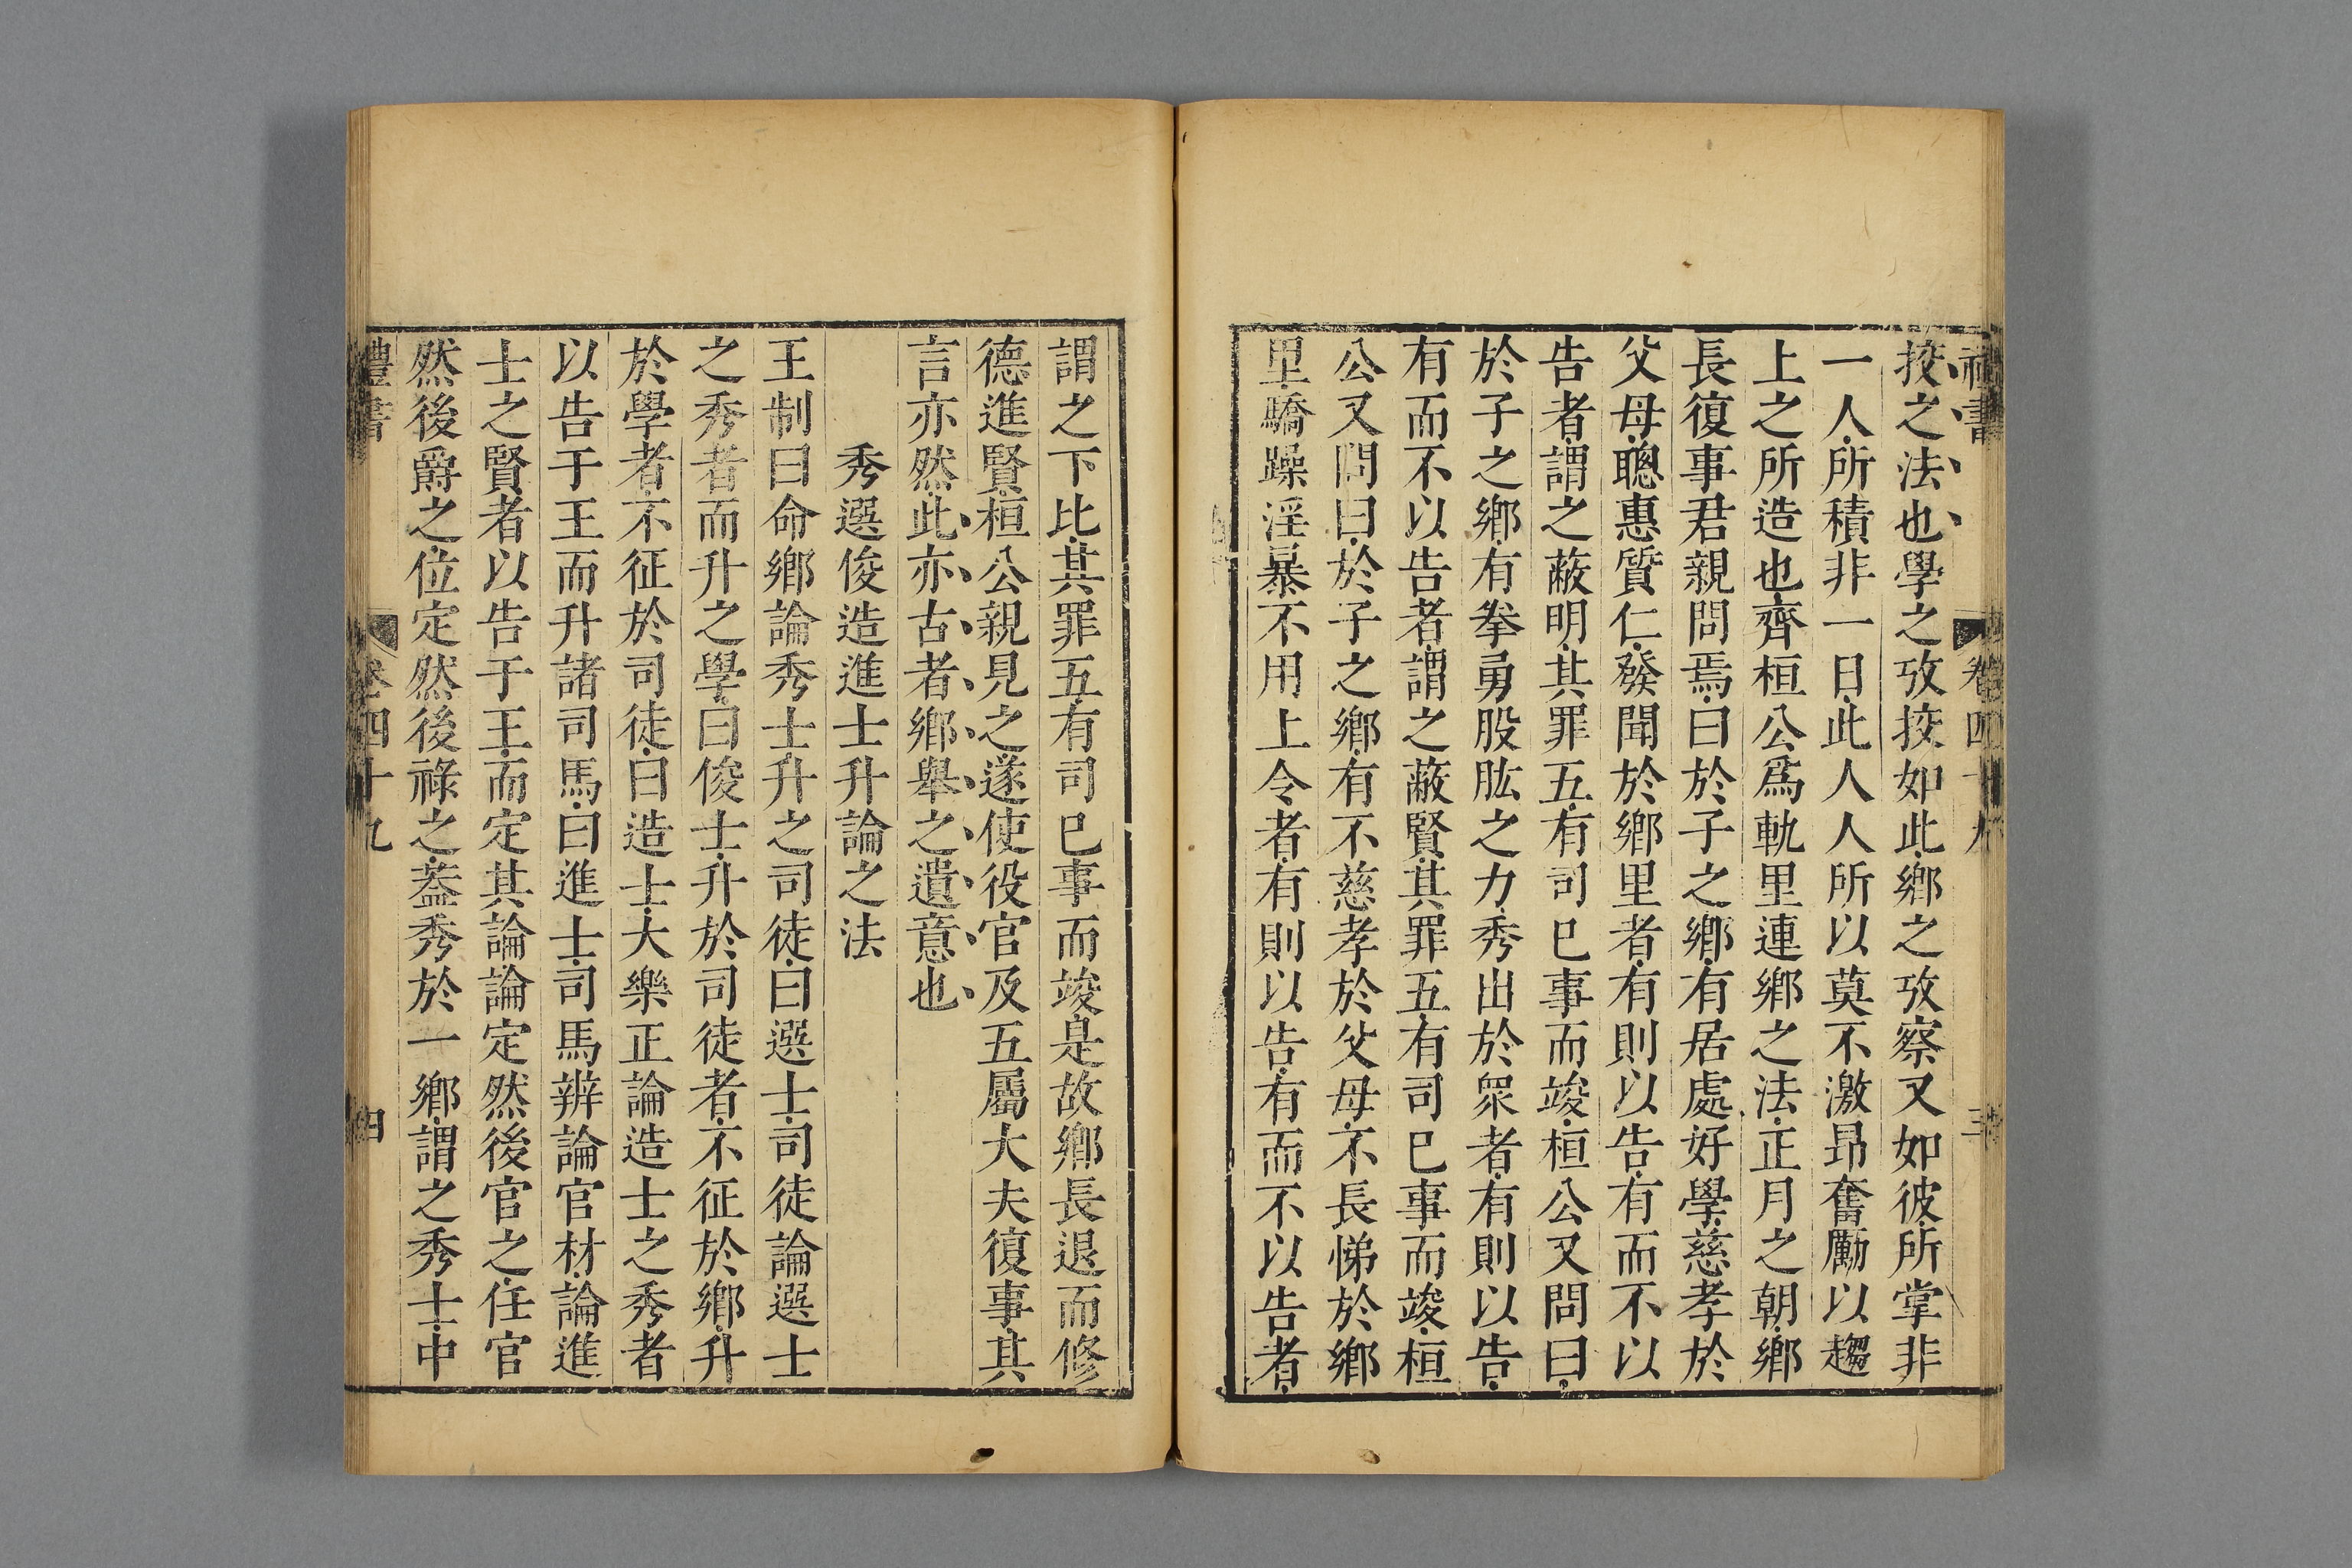 禮書 卷四十九 三
挍之法也學之攷挍如此鄉之攷察又如彼所掌非
一人所積非一日此人人所以莫不激昻奮勵以趨
上之所造也齊桓公爲軌里連鄉之法正月之朝鄉
長復事君親問焉曰於子之鄉有居處好學慈孝於
父母聰惠質仁發聞於鄉里者有則以告有而不以
告者謂之蔽明其罪五有司已事而竣桓公又問曰
於子之鄉有拳勇股肱之力秀出於衆者有則以告
有而不以告者謂之蔽賢其罪五有司已事而竣桓
公又問曰於子之鄉有不慈孝於父母不長悌於鄉
里驕躁淫暴不用上令者有則以告有而不以告者
謂之下比其罪五有司已事而竣是故鄉長退而修
德進賢桓公親見之遂使役官及五屬大夫復事其
言亦然此亦古者鄉舉之遺意也
秀選俊造進士升論之法
王制曰命鄉論秀士升之司徒曰選士司徒論選士
之秀者而升之學曰俊士升於司徒者不征於鄉升
於學者不征於司徒曰造士大樂正論造士之秀者
以告于王而升諸司馬曰進士司馬辨論官材論進
士之賢者以告于王而定其論論定然後官之任官
然後爵之位定然後祿之葢秀於一鄉謂之秀士中
禮書 卷四十九 四